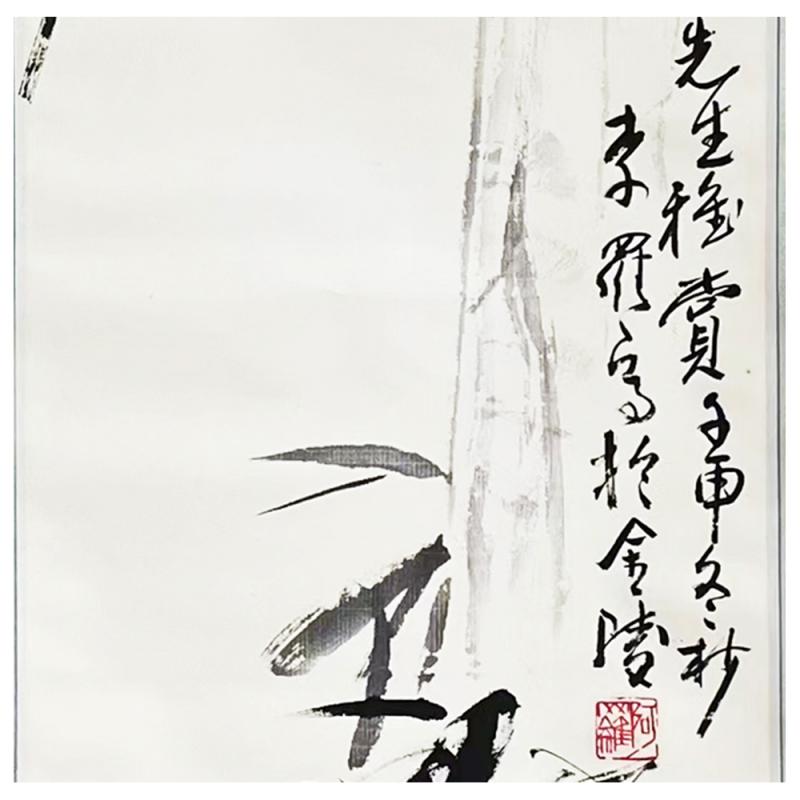 先生雅賞壬申冬杪
李羅写於金陵
阿羅